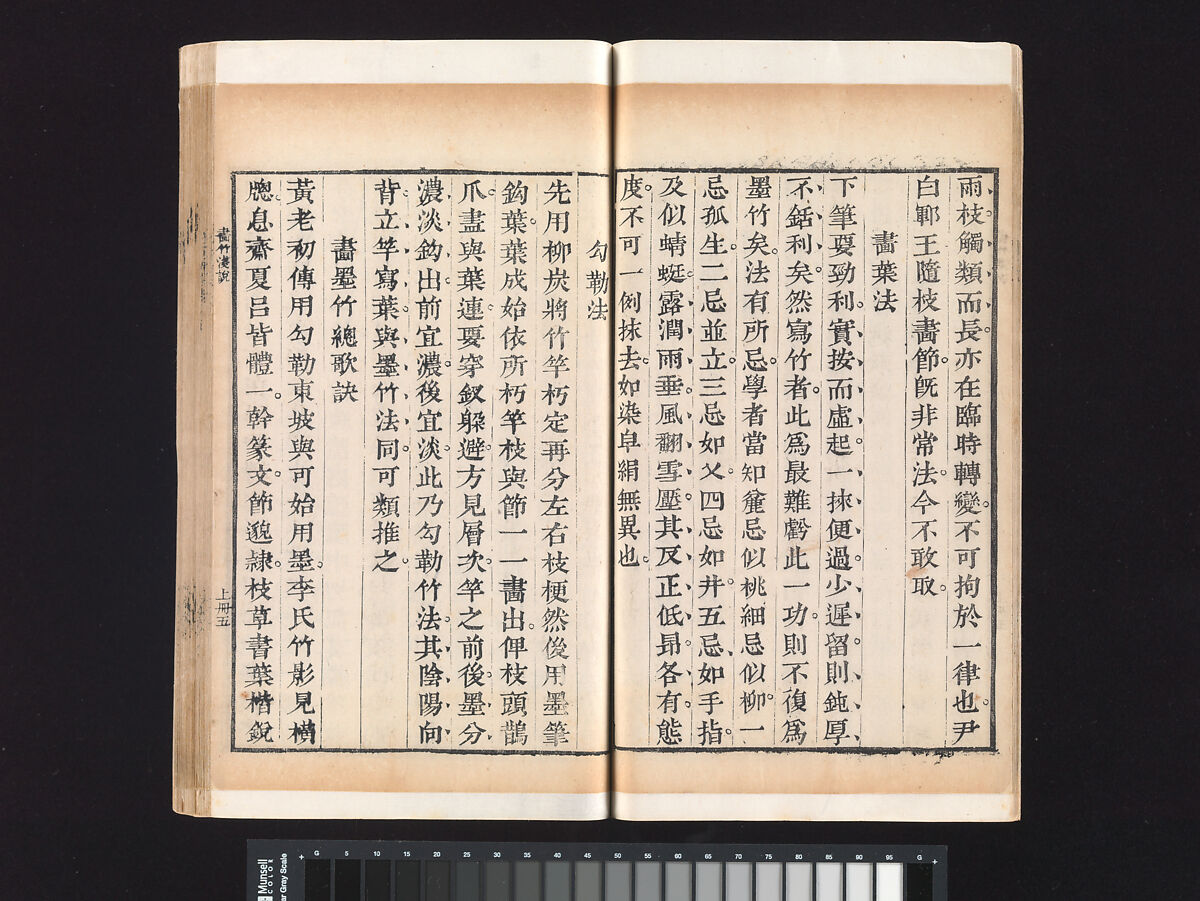 雨枝觸類而長亦在臨時轉變不可拘於一律也尹
白鄆王隨枝畫節旣非常法今不敢取
畫葉法
下筆要勁利實按而虛起一抹便過少遲留則鈍厚
不銛利矣然寫竹者此爲最難虧此一功則不復爲
墨竹矣法有所忌學者當知麄忌似桃細忌似柳一
忌孤生二忌並立三忌如乂四忌如井五忌如手指
及似蜻蜓露潤雨垂風翻雪壓其反正低昂各有態
度不可一例抹去如染皁絹無異也
勾勒法
先用柳炭將竹竿朽定再分左右枝梗然後用墨筆
鈎葉葉成始依所朽竿枝與節一一畵出俾枝頭鵲
爪盡與葉連要穿釵躱避方見層次竿之前後墨分
濃淡鈎出前宜濃後宜淡此乃勾勒竹法其陰陽向
背立竿寫葉與墨竹法同可類推之
畫墨竹總歌訣
黃老初傳用勾勒東坡與可始用墨李氏竹影見橫
牕息齋夏呂皆體一幹篆文節邈隷枝草書葉楷銳
畫竹淺說
上冊五
Munsell
COLOR
Gray Scale
G 5 10 15 20 25 30 35 40 45 50 55 60 65 70 75 80 85 90 95 G